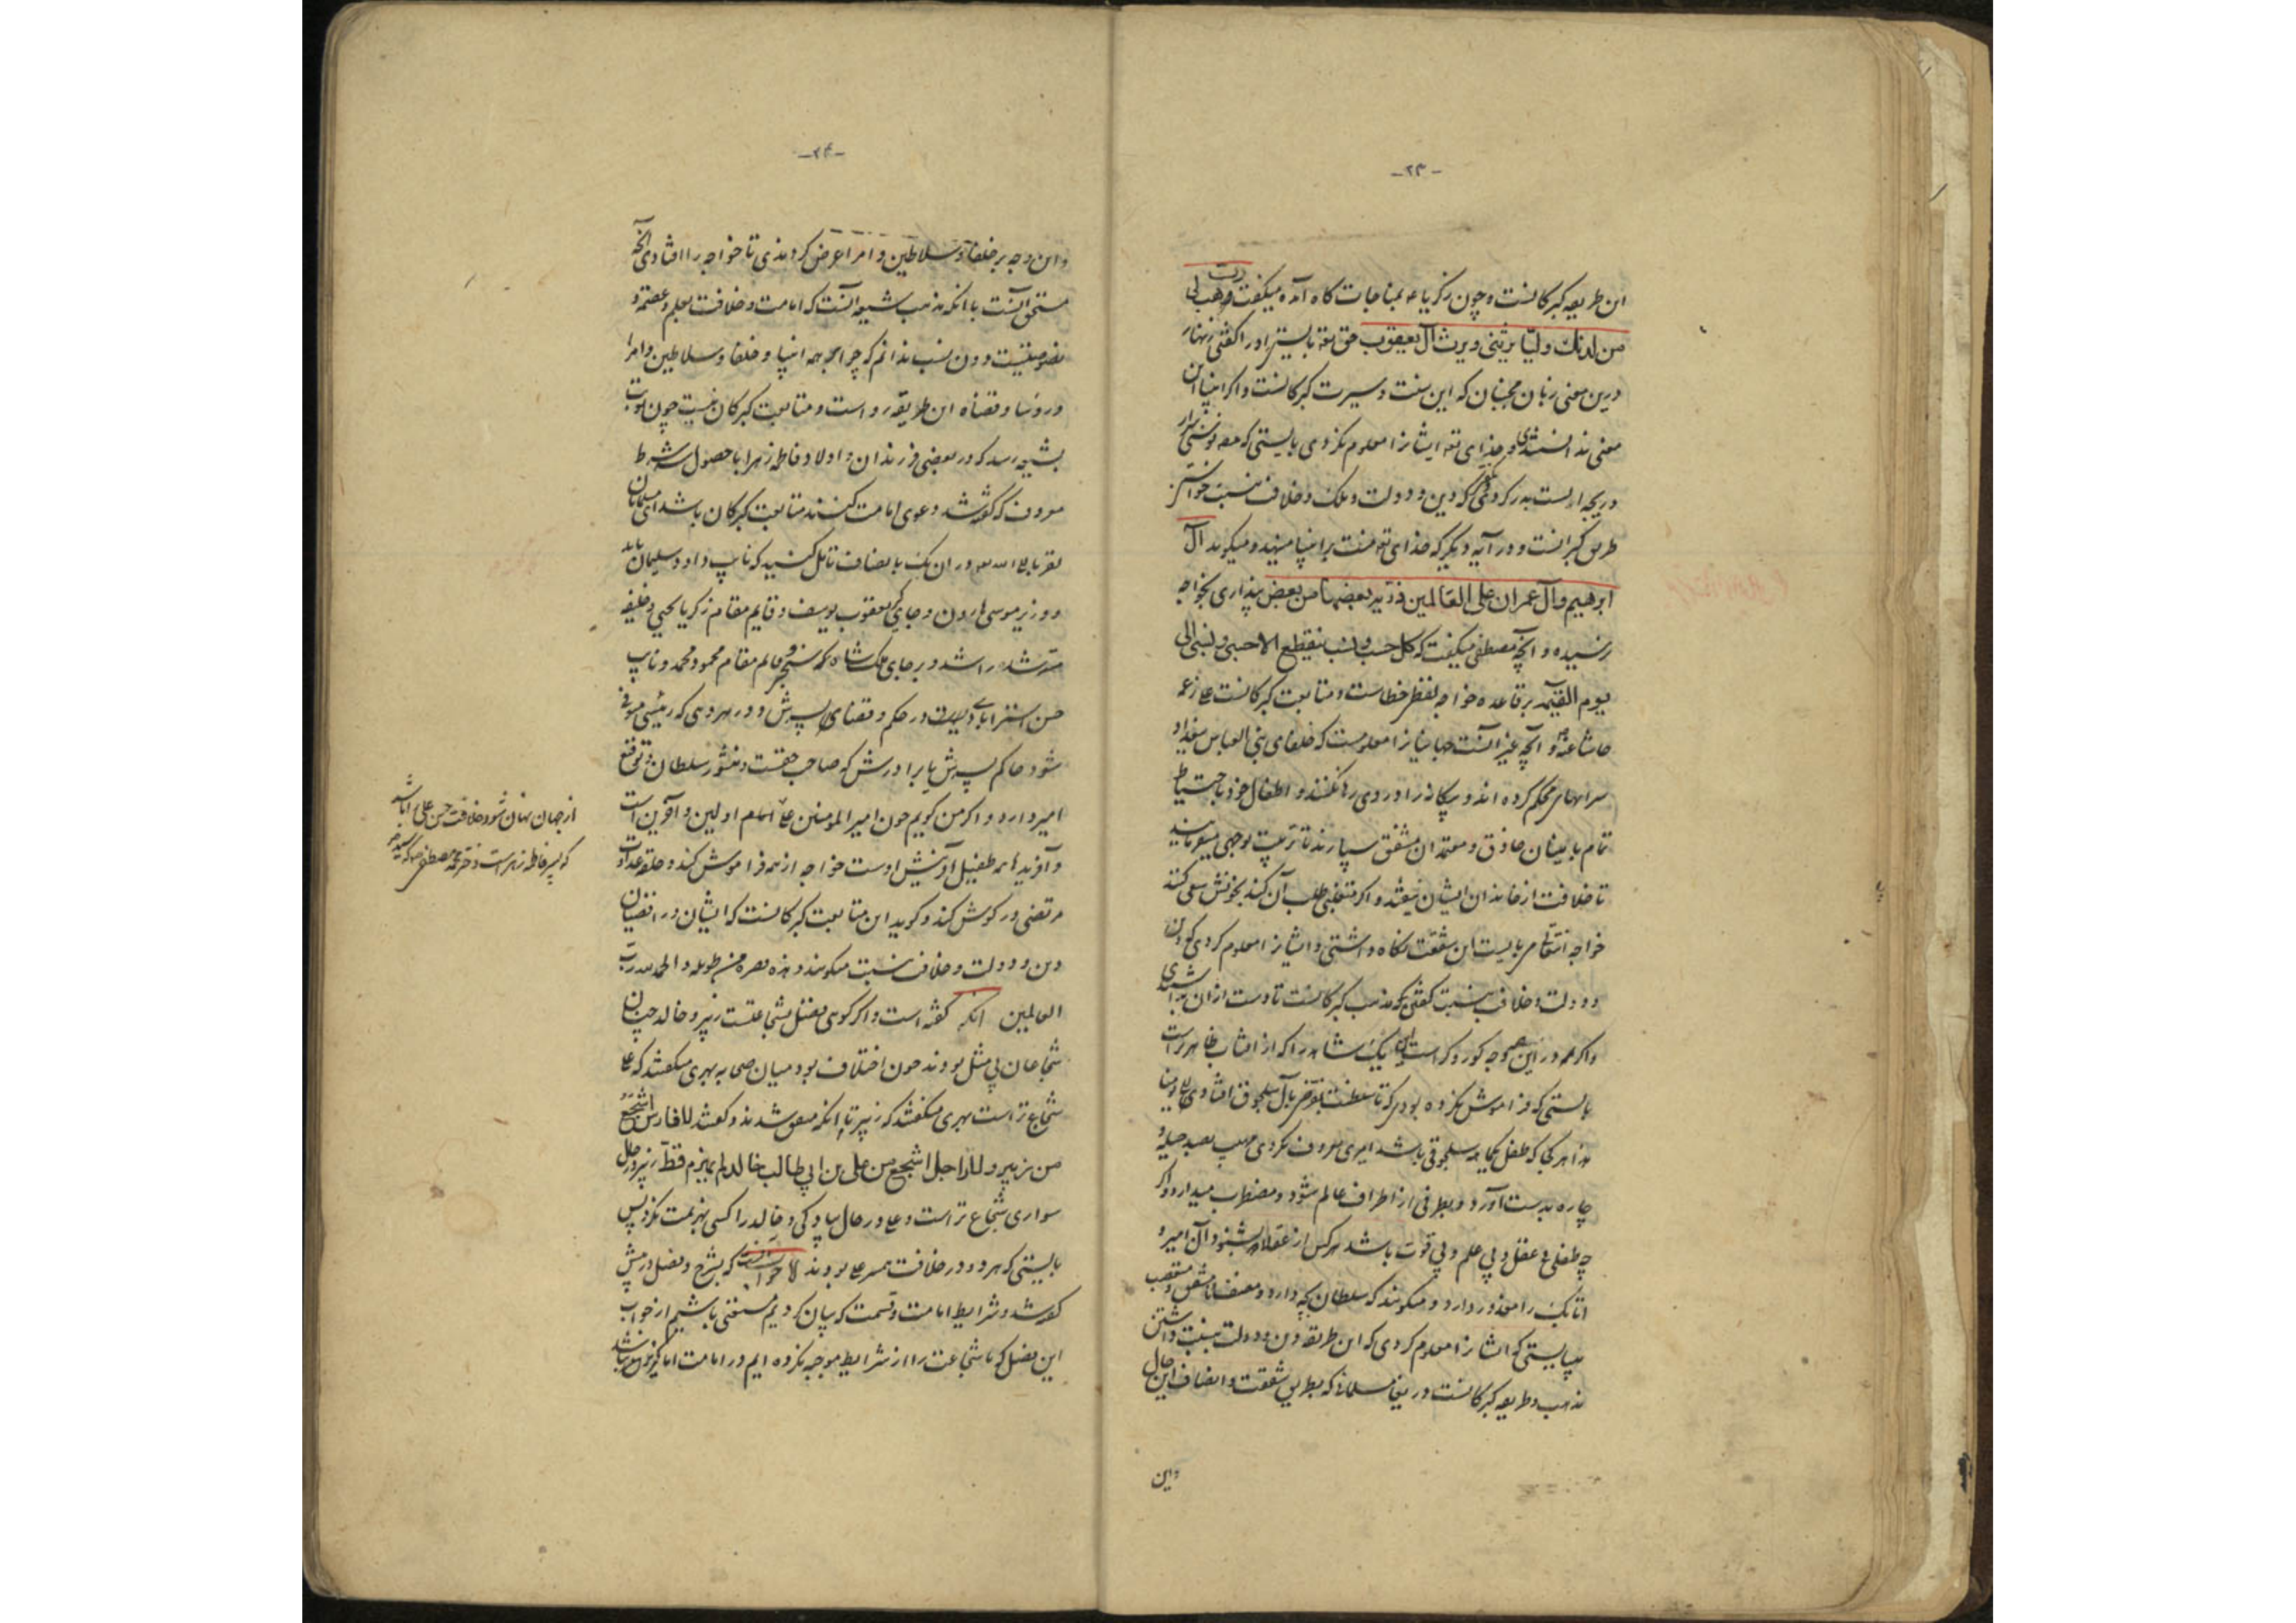 -۲۳-
این طریقه گبرکانست و چون زکریا ع بمناجات گاه آمده میگفت رب هب لی
من لدنک ولیّا یرثنی و یرث آل یعقوب حق تعه بایستی او را گفتی زنهار
درین معنی زبان مجنبان که این سنت و سیرت گبرکانست و اگر انبیا این
معنی ندانستندی و خدای تعه ایشانرا معلوم نکردی بایستی که
بدر کردی که دین و دولت و ملک و خلافت بنسبت خواستن
طریق گبرانست و در آیه دیگر که خدای تعه منت بر انبیا مینهد و میگوید آل
ابرهیم و آل عمران علی العالمین ذریّه بعضها من بعض پنداری بخواجه
نرسیده و آنچه مصطفی میگفت که کل حسب و نسب ینقطع الا حسبی و نسبی الی
یوم القیمه بر قاعده خواجه لفظ خطاست و متابعت گبرکانست علی زعمه
حاشا عنه و آنچه غیر آنست جهانیانرا معلومست که خلفای بنی العباس ببغداد
سراهای محکم کرده اند و بیگانه را در وی رها نکنند و اطفال خود باحتیاط
تمام بامینان حاذق و معتمدان مشفق سپارند تا تربیت بوجهی میفرمایند
تا خلافت از خاندان ایشان نیفتد و اگر متغلبی طلب آن کند بخونش سعی کنند
خواجه انتقالی را میبایست این شفقت نگاه داشتی و ایشانرا معلوم کردی که دین
و دولت و خلافت بنسبت گفتن مذهب گبرکانست تا دست ازان بداشتندی
و اگر هم در این وجه کور و کر است این یک شاهد را که از آفتاب ظاهرتر است
بایستی که فراموش نکرده بودی که تا سلطنت بآل سلجوق افتاد
هر کجا که طفل سلجوقی باشد امیری معروف بصد حیله و
چاره بدست آورد و بطرفی از اطراف عالم شود و مضطرب میدارد و اگر
چه طفلی بی عقل و بی علم و بی قوت باشد هر کس از عقلا بشنود آن امیر و
اتابک را معذور دارد و میگویند که سلطان بچه دارد و مصنف نامشفق و متعصب
میبایستی که ایشانرا معلوم کردی که این طریقه دین و دولت بنسبت داشتن
مذهب و طریقه گبرکانست دریغا مسلمانی که بطریق شفقت و انصاف این حال
واین
-۲۴-
و این وجه بر خلفا و سلاطین و امرا عرض کردندی تا خواجه را افتادی آنچه
مستحق آنست با آنکه مذهب شیعه آنست که امامت و خلافت بعلم و عصمت و
نصوصیتست و دون نسب ندانم که چرا بهمه انبیا و خلفا و سلاطین و امرا
و رؤسا و قضاة این طریقه رواست و متابعت گبرکان نیست چون نوبت
بشیعه رسد که در بعضی فرزندان و اولاد فاطمه زهرا با حصول شرط
معروف که گفته شد دعوی امامت کنند متابعت گبرکان باشد ای مسلمانان
تقربا الی الله در آن یک بانصاف تأمل کنید که نایب داود سلیمان باید
و وزیر موسی هرون و جای گیر یعقوب یوسف و قایم مقام زکریا یحیی و خلیفه
مسترشد راشد و بر جای ملکشاه سنجر و قایم مقام محمود محمد و نایب
حسن استرابادی در حکم و قضا پسرش و در هر دهی که رئیسی متوفی
شود حاکم پسرش یا برادرش که صاحب حقست و منشور سلطان و توقیع
امیر دارد و اگر من گویم چون امیر المومنین علی که امام اولین و آخرین است
و آفریدها همه طفیل آفرینش اوست خواجه از همه فراموش کند و حلقه عداوت
مرتضی در گوش کند و گوید این متابعت گبرکانست که ایشان در انقضیان
دین و دولت و خلافت بنسبت میگویند و هذه بعره من طویله و الحمد لله رب
العالمین آنکه گفته است و اگر گوئی بفضل شجاعتست زبیر و خالد چنان
شجاعان بی مثل بودند چون اختلاف بود میان صحابه بهری میگفتند که علی
شجاع تر است بهری میگفتند که زبیر تا آنکه متفق شدند و گفتند للفارس اشجع
من زبیر و للراجل اشجع من علی بن ابی طالب خالد لم یهزم قط زبیر در حال
سواری شجاع تر است و علی در حال پیادگی و خالد را کسی بهزیمت نکرد پس
بایستی که هر دو در خلافت همسر علی بودند لا جواب که بشرح و فصل در پیش
گفته شد و شرایط امامت و قسمت که بیان کردیم مستغنی باشیم از جواب
این فصل که ما شجاعت را از شرایط موجبه نکرده ایم در امامت اما
از جهان نهان شود خلافت حسن علی را باشد
که پسر فاطمه زهراست و دختر محمد مصطفی